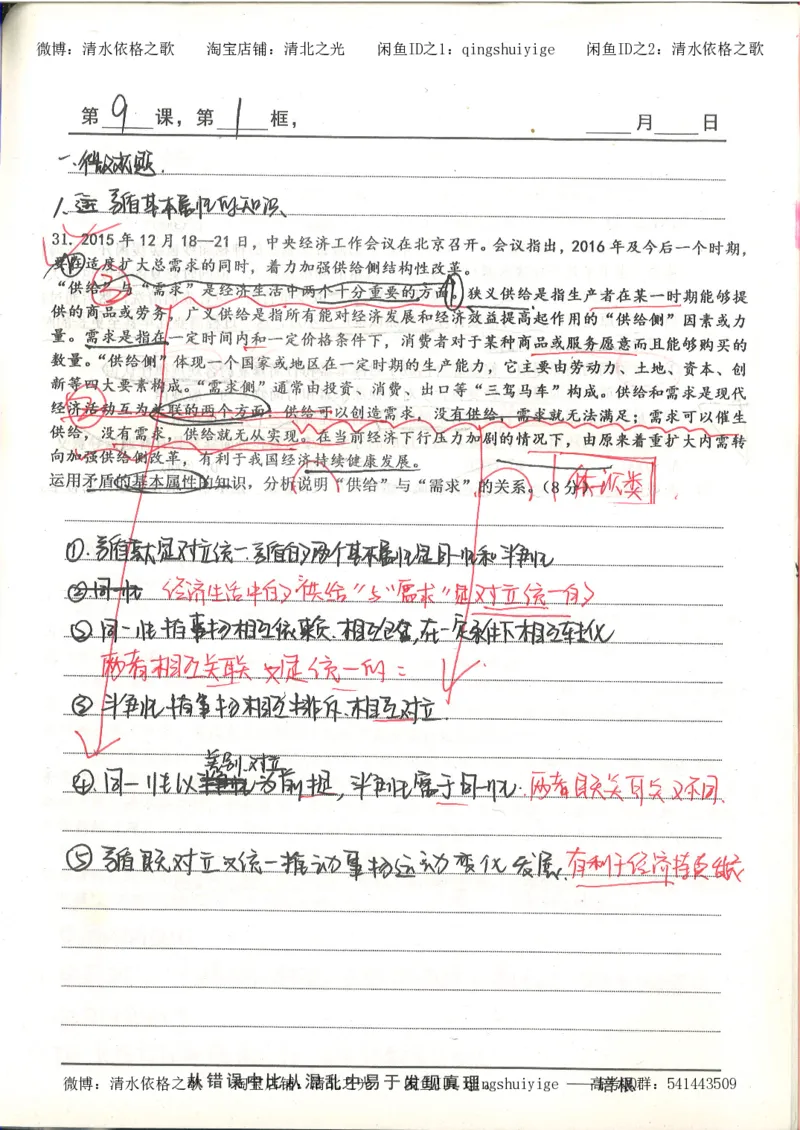 微博：清水依格之歌 淘宝店铺：清北之光 闲鱼ID之1：qingshuiyige 闲鱼ID之2：清水依格之歌
第 9 课，第 1 框， 月 日
一、
1. 矛盾基本属性的知识
31. 2015年12月18—21日，中央经济工作会议在北京召开。会议指出，2016年及今后一个时期，
要在适度扩大总需求的同时，着力加强供给侧结构性改革。
③
“供给”与“需求”是经济生活中两个十分重要的方面。狭义供给是指生产者在某一时期能够提
供的商品或劳务，广义供给是指所有能对经济发展和经济效益提高起作用的“供给侧”因素或力
量。需求是指在一定时间内和一定价格条件下，消费者对于某种商品或服务愿意而且能够购买的
数量。“供给侧”体现一个国家或地区在一定时期的生产能力，它主要由劳动力、土地、资本、创
新等四大要素构成。“需求侧”通常由投资、消费、出口等“三驾马车”构成。供给和需求是现代
②
经济活动互为关联的两个方面，供给可以创造需求，没有供给，需求就无法满足；需求可以催生
供给，没有需求，供给就无从实现。在当前经济下行压力加剧的情况下，由原来着重扩大内需转
向加强供给侧改革，有利于我国经济持续健康发展。
运用矛盾的基本属性的知识，分析说明“供给”与“需求”的关系。(8分) 体认类
①. 矛盾就是对立统一. 矛盾的两个基本属性是同一性和斗争性
② 同一性 经济生活中的“供给”与“需求”是对立统一的
② 同一性指事物相互依赖、相互包含, 在一定条件下相互转化
两者相互关联 又是统一的：
③ 斗争性指事物相互排斥、相互对立.
差别.对立
④. 同一性以为前提, 斗争性寓于同一性. 两者既关联又不同.
⑤ 矛盾既对立又统一推动事物运动变化发展. 有利于经济持续发展
从错误中比从混乱中易于发现真理。 ——培根
微博：清水依格之歌 淘宝店铺：清北之光 闲鱼ID：qingshuiyige 高考QQ群：541443509